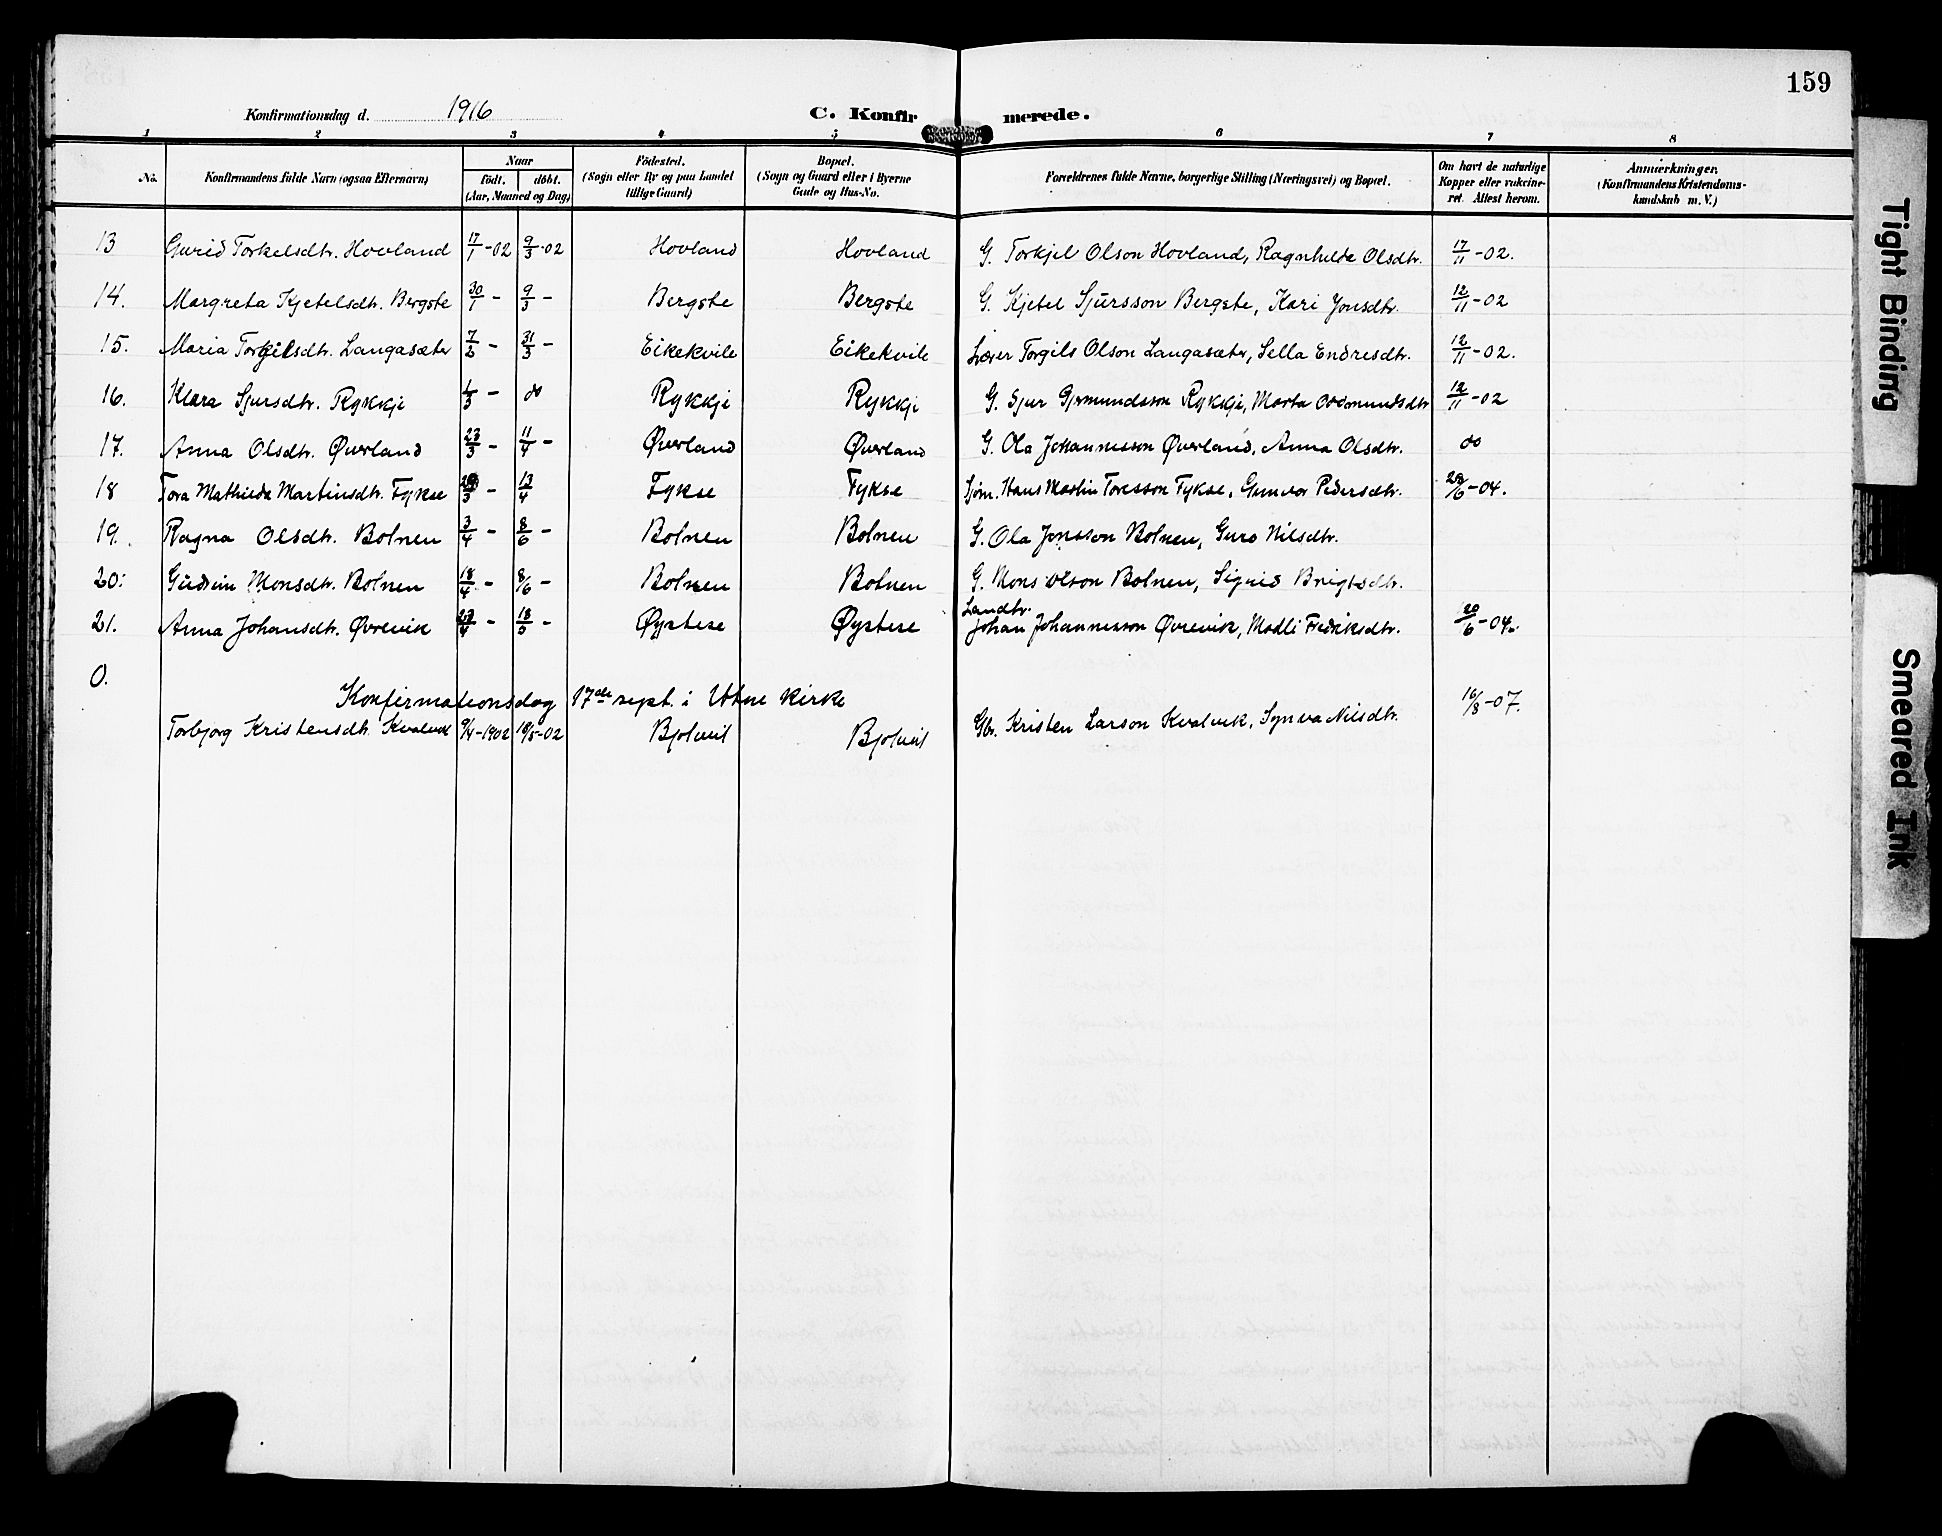 159
Konfirmationsdag d. 1916 C. Konfirmerede.
1 2 3 4 5 6 7 8
No. Konfirmandens fulde Navn (ogsaa Efternavn) Naar födt. döbt. (Aar, Maaned og Dag) Födested. (Sogn eller By og paa Landet tillige Gaard) Bopæl. (Sogn og Gaard eller i Byerne Gade og Hus-No. Forældrenes fulde Navne, borgerlige Stilling (Næringsvei) og Bopæl. Om havt de naturlige Kopper eller vakcineret. Attest herom. Anmærkninger. (Konfirmandens Kristendomskundskab m. V.)
13 Gurid Torkelsdtr. Hovland 17/1-02 9/3-02 Hovland Hovland G. Torkjel Olson Hovland, Ragnhilda Olsdtr. 17/11-02.
14. Margreta Kjetelsdtr. Bergste 30/1 - 9/3 - Bergste Bergste G. Kjetel Sjursson Bergste, Kari Jonsdtr. 12/11-02
15. Maria Torgilsdtr. Langasæter 7/2 - 31/3 - Eikekvile Eikekvile Torgils Olson Langasæter, Sella Endresdtr. 12/11-02.
16. Klara Sjursdtr. Rykkje 1/3 - do Rykkje Rykkje G. Sjur Gjermundsson Rykkje, Marta 12/11-02
17. Anna Olsdtr. Øverland 23/3 - 11/4 - Øverland Øverland G. Ola Johannesson Øverland, Anna Olsdtr. do
18 Tora Mathilda Martinsdtr. Fykse /3 - 13/4 Fykse Fykse Sjøm. Hans Martin Toresson Fykse, Gunvor Pedersdtr. /6-04.
19. Ragna Olsdtr. Botnen 3/4 - 8/6 - Botnen Botnen G. Ola Jonsson Botnen, Guro Nilsdtr.
20. Gudrun Monsdtr. Botnen 18/4 - 8/6 - Botnen Botnen G. Mons Olson Botnen, Sigrid Brigtsdtr.
21. Anna Johansdtr. Øvrevik /4 - 18/5 - Øystese Øystese Landhr. Johan Johannesson Øvrevik, Madli Fredriksdtr. 20/6-04.
0.
Konfirmationsdag 17de sept. i Utne kirke
Torbjorg Kristensdtr. Kvalvik 9/4-1902 19/5-02 Bjolveit Bjolveit Gbr. Kristen Larson Kvalvik, Synva Nilsdtr. 16/8-07.
Tight Binding
Smeared Ink